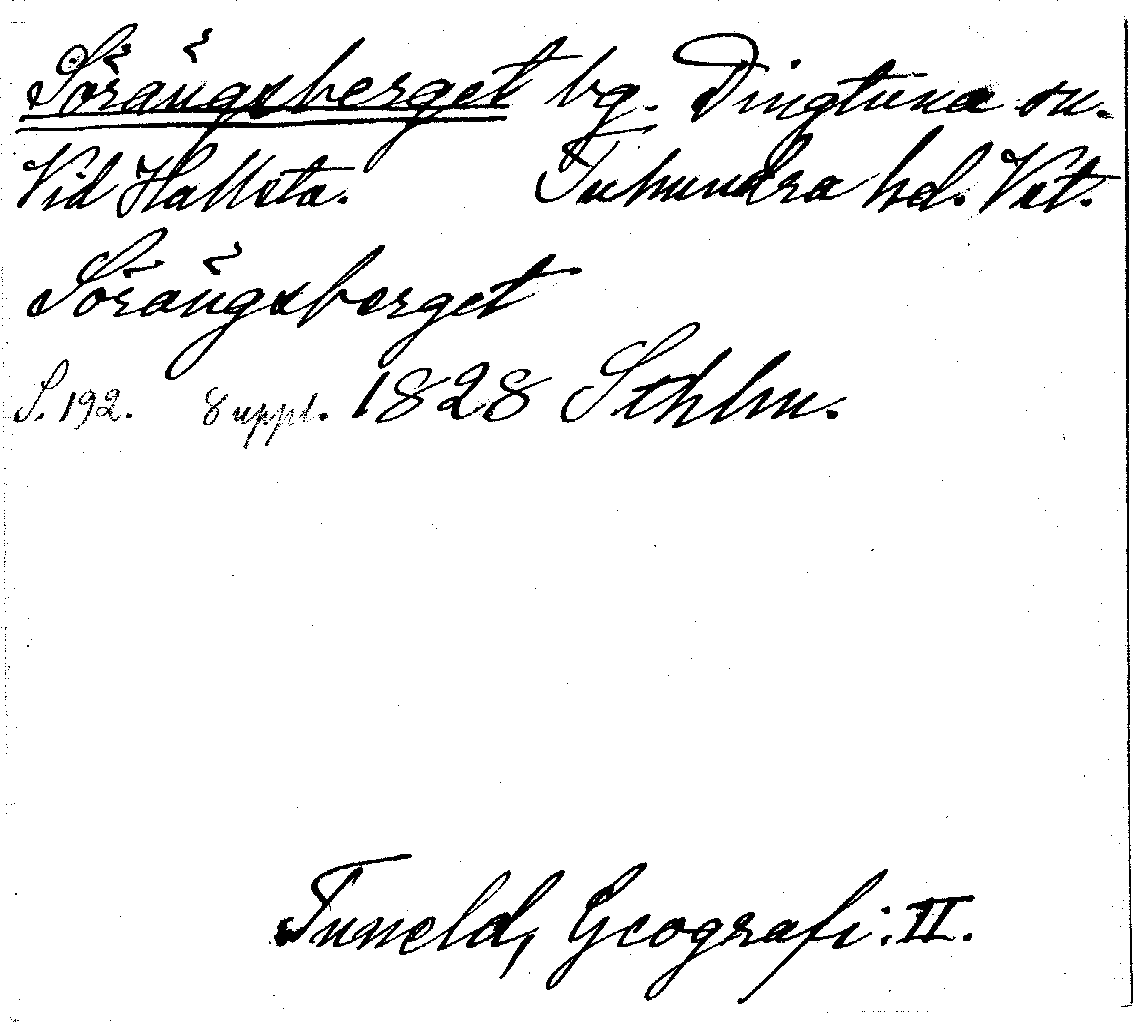 Sörängsberget bg. Dingtuna sn.
Vid Hallsta. Tuhundra hd. Vst.
Sörängsberget
S. 192. 8 uppl. 1828 Sthlm.
Tuneld, Geografi: II.